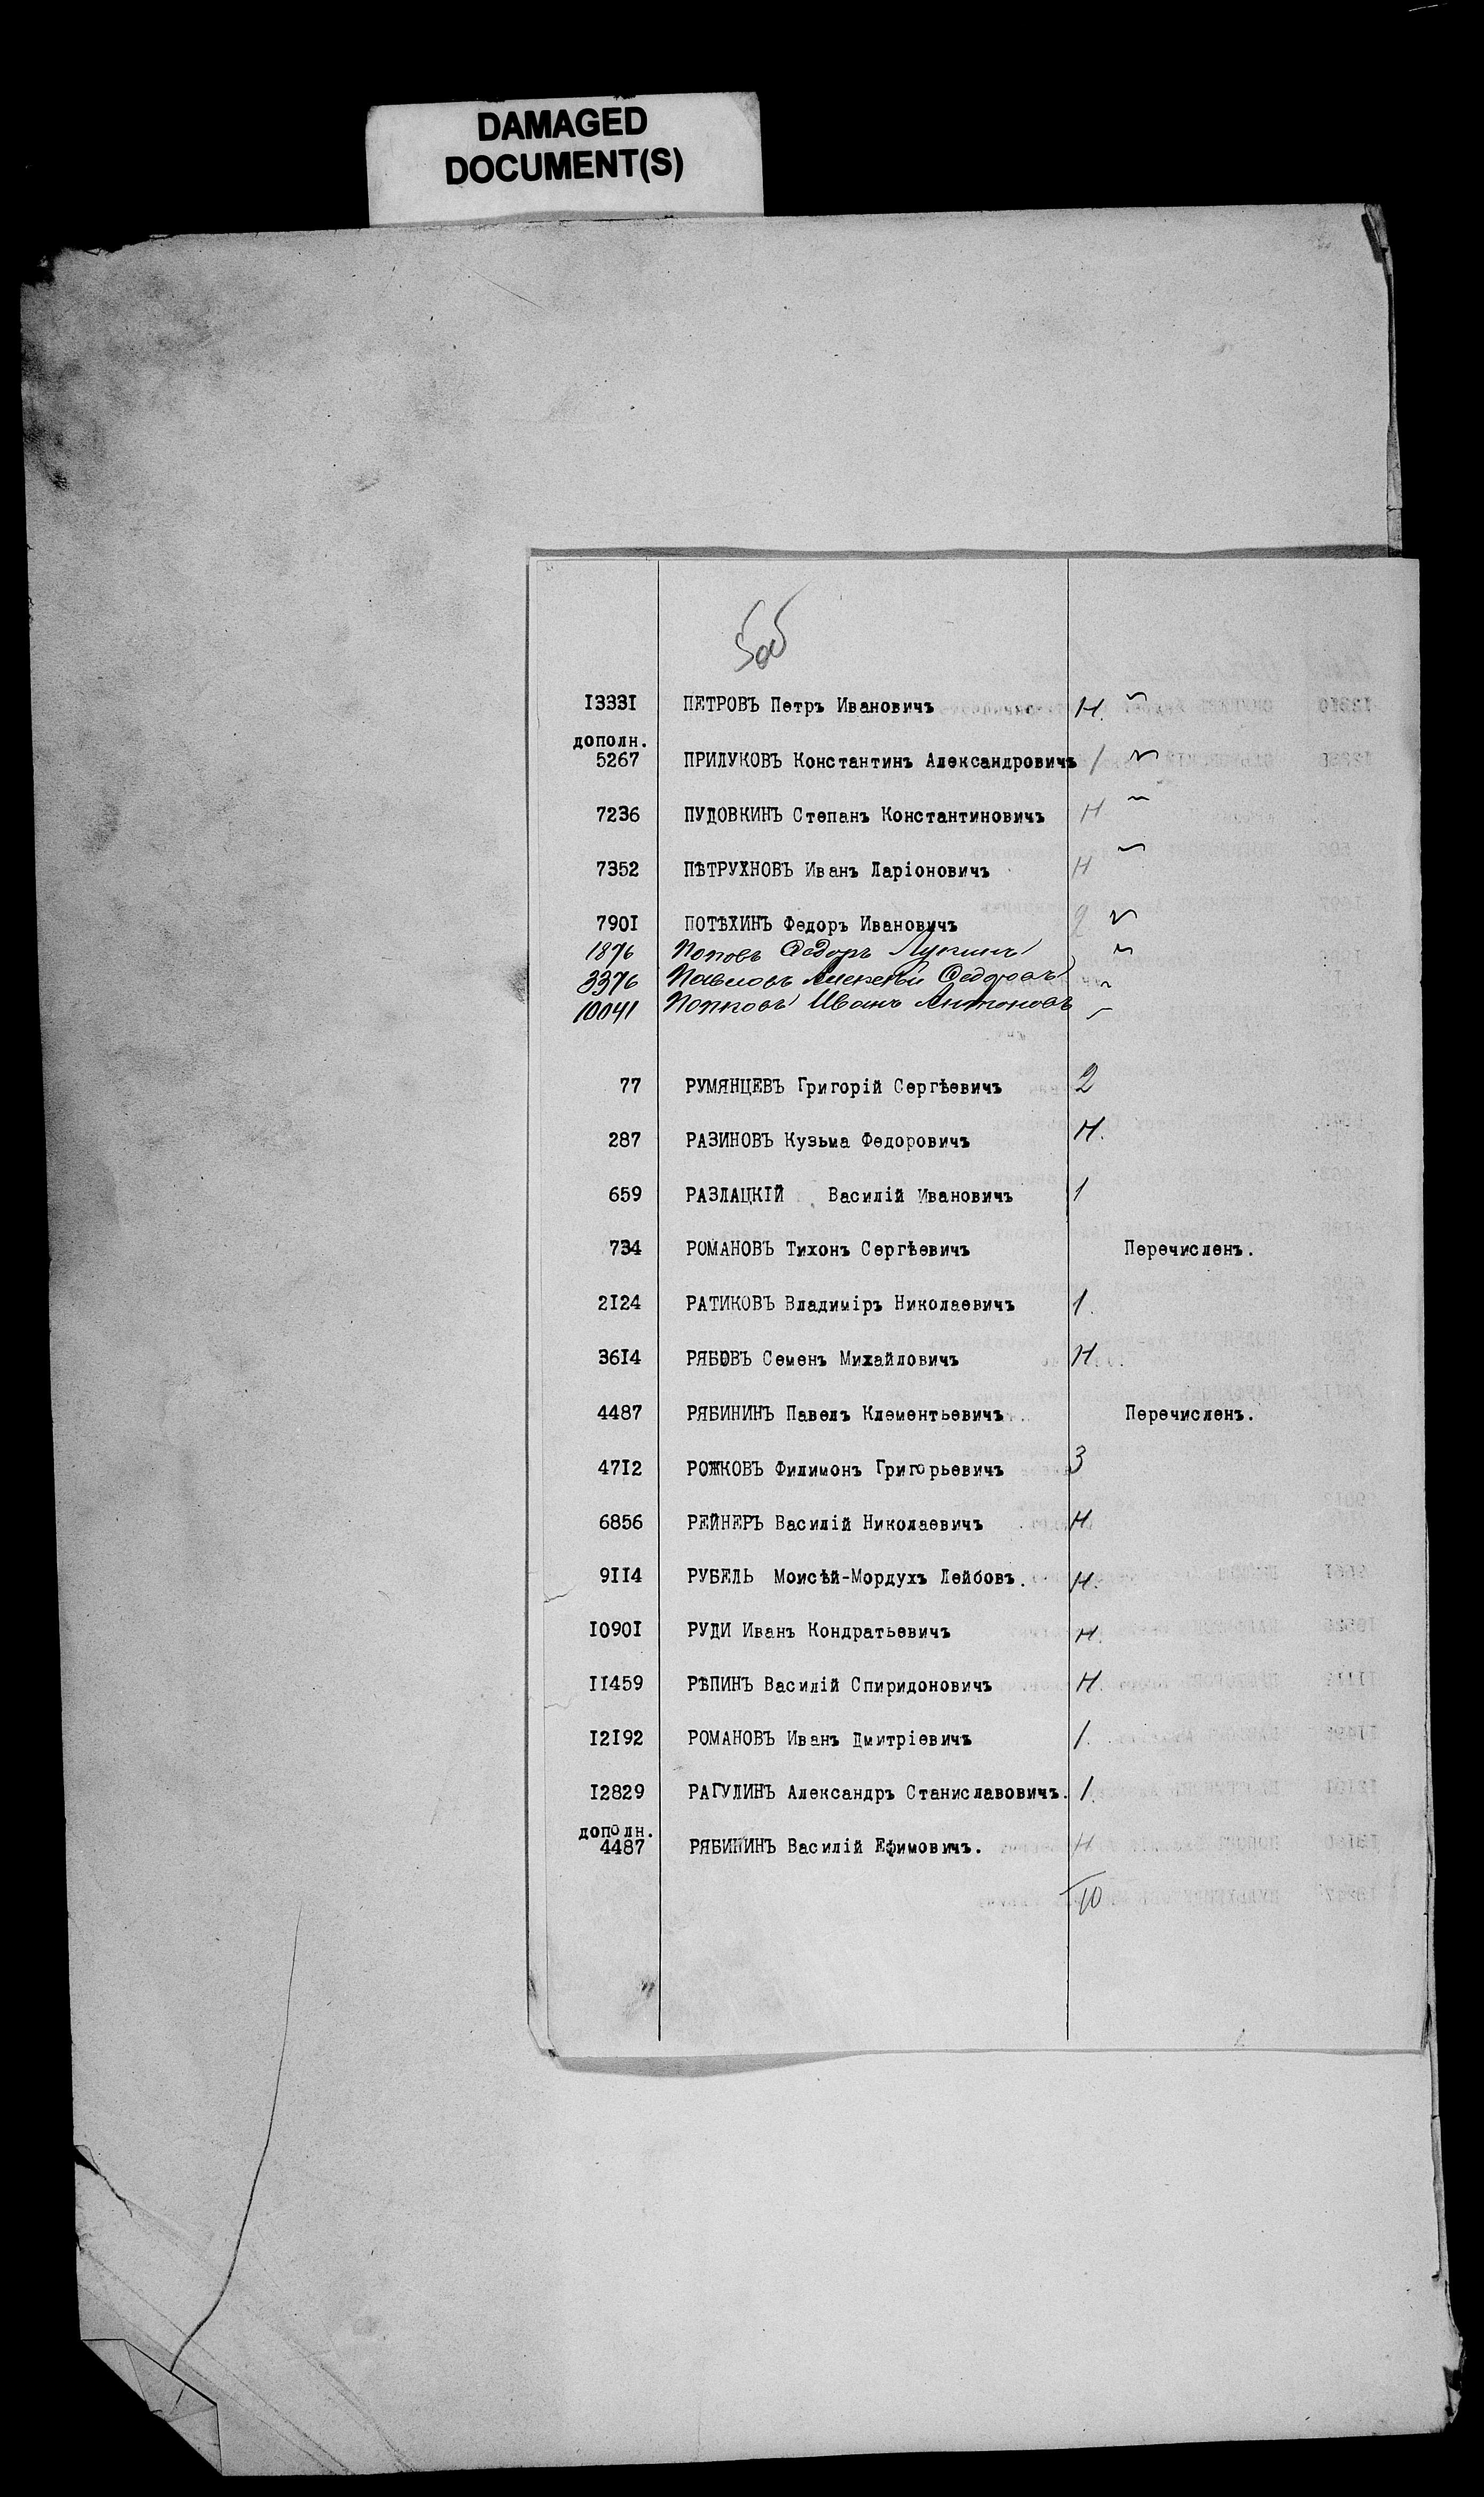 DAMAGED
DOCUMENT(S)
I333I ПЕТРОВЪ Петръ Ивановичъ Н.
дополн.
5267 ПРИЛУКОВЪ Константинъ Александровичъ /
7236 ПУДОВКИНЪ Степанъ Константиновичъ Н
7352 ПѢТРУХНОВЪ Иванъ Ларіоновичъ Н
790I ПОТѢХИНЪ Федоръ Ивановичъ 2
1876 Поповъ Федоръ Лукичъ
3376 Павловъ Алексѣй Федоровъ
10041 Попковъ Иванъ Антоновъ
77 РУМЯНЦЕВЪ Григорій Сергѣевичъ 2
287 РАЗИНОВЪ Кузьма Федоровичъ Н.
659 РАЗЛАЦКІЙ Василій Ивановичъ 1
734 РОМАНОВЪ Тихонъ Сергѣевичъ Перечисленъ.
2I24 РАТИКОВЪ Владиміръ Николаевичъ 1.
36I4 РЯБОВЪ Семенъ Михайловичъ Н.
4487 РЯБИНИНЪ Павелъ Клементьевичъ Перечисленъ.
47I2 РОЖКОВЪ Филимонъ Григорьевичъ 3
6856 РЕЙНЕРЪ Василій Николаевичъ Н
9II4 РУБЕЛЬ Моисѣй-Мордухъ Лейбовъ. Н.
I090I РУДИ Иванъ Кондратьевичъ Н.
II459 РѢПИНЪ Василій Спиридоновичъ Н.
I2I92 РОМАНОВЪ Иванъ Дмитріевичъ 1.
I2829 РАГУЛИНЪ Александръ Станиславовичъ. 1.
дополн.
4487 РЯБИНИНЪ Василій Ефимовичъ. Н
10